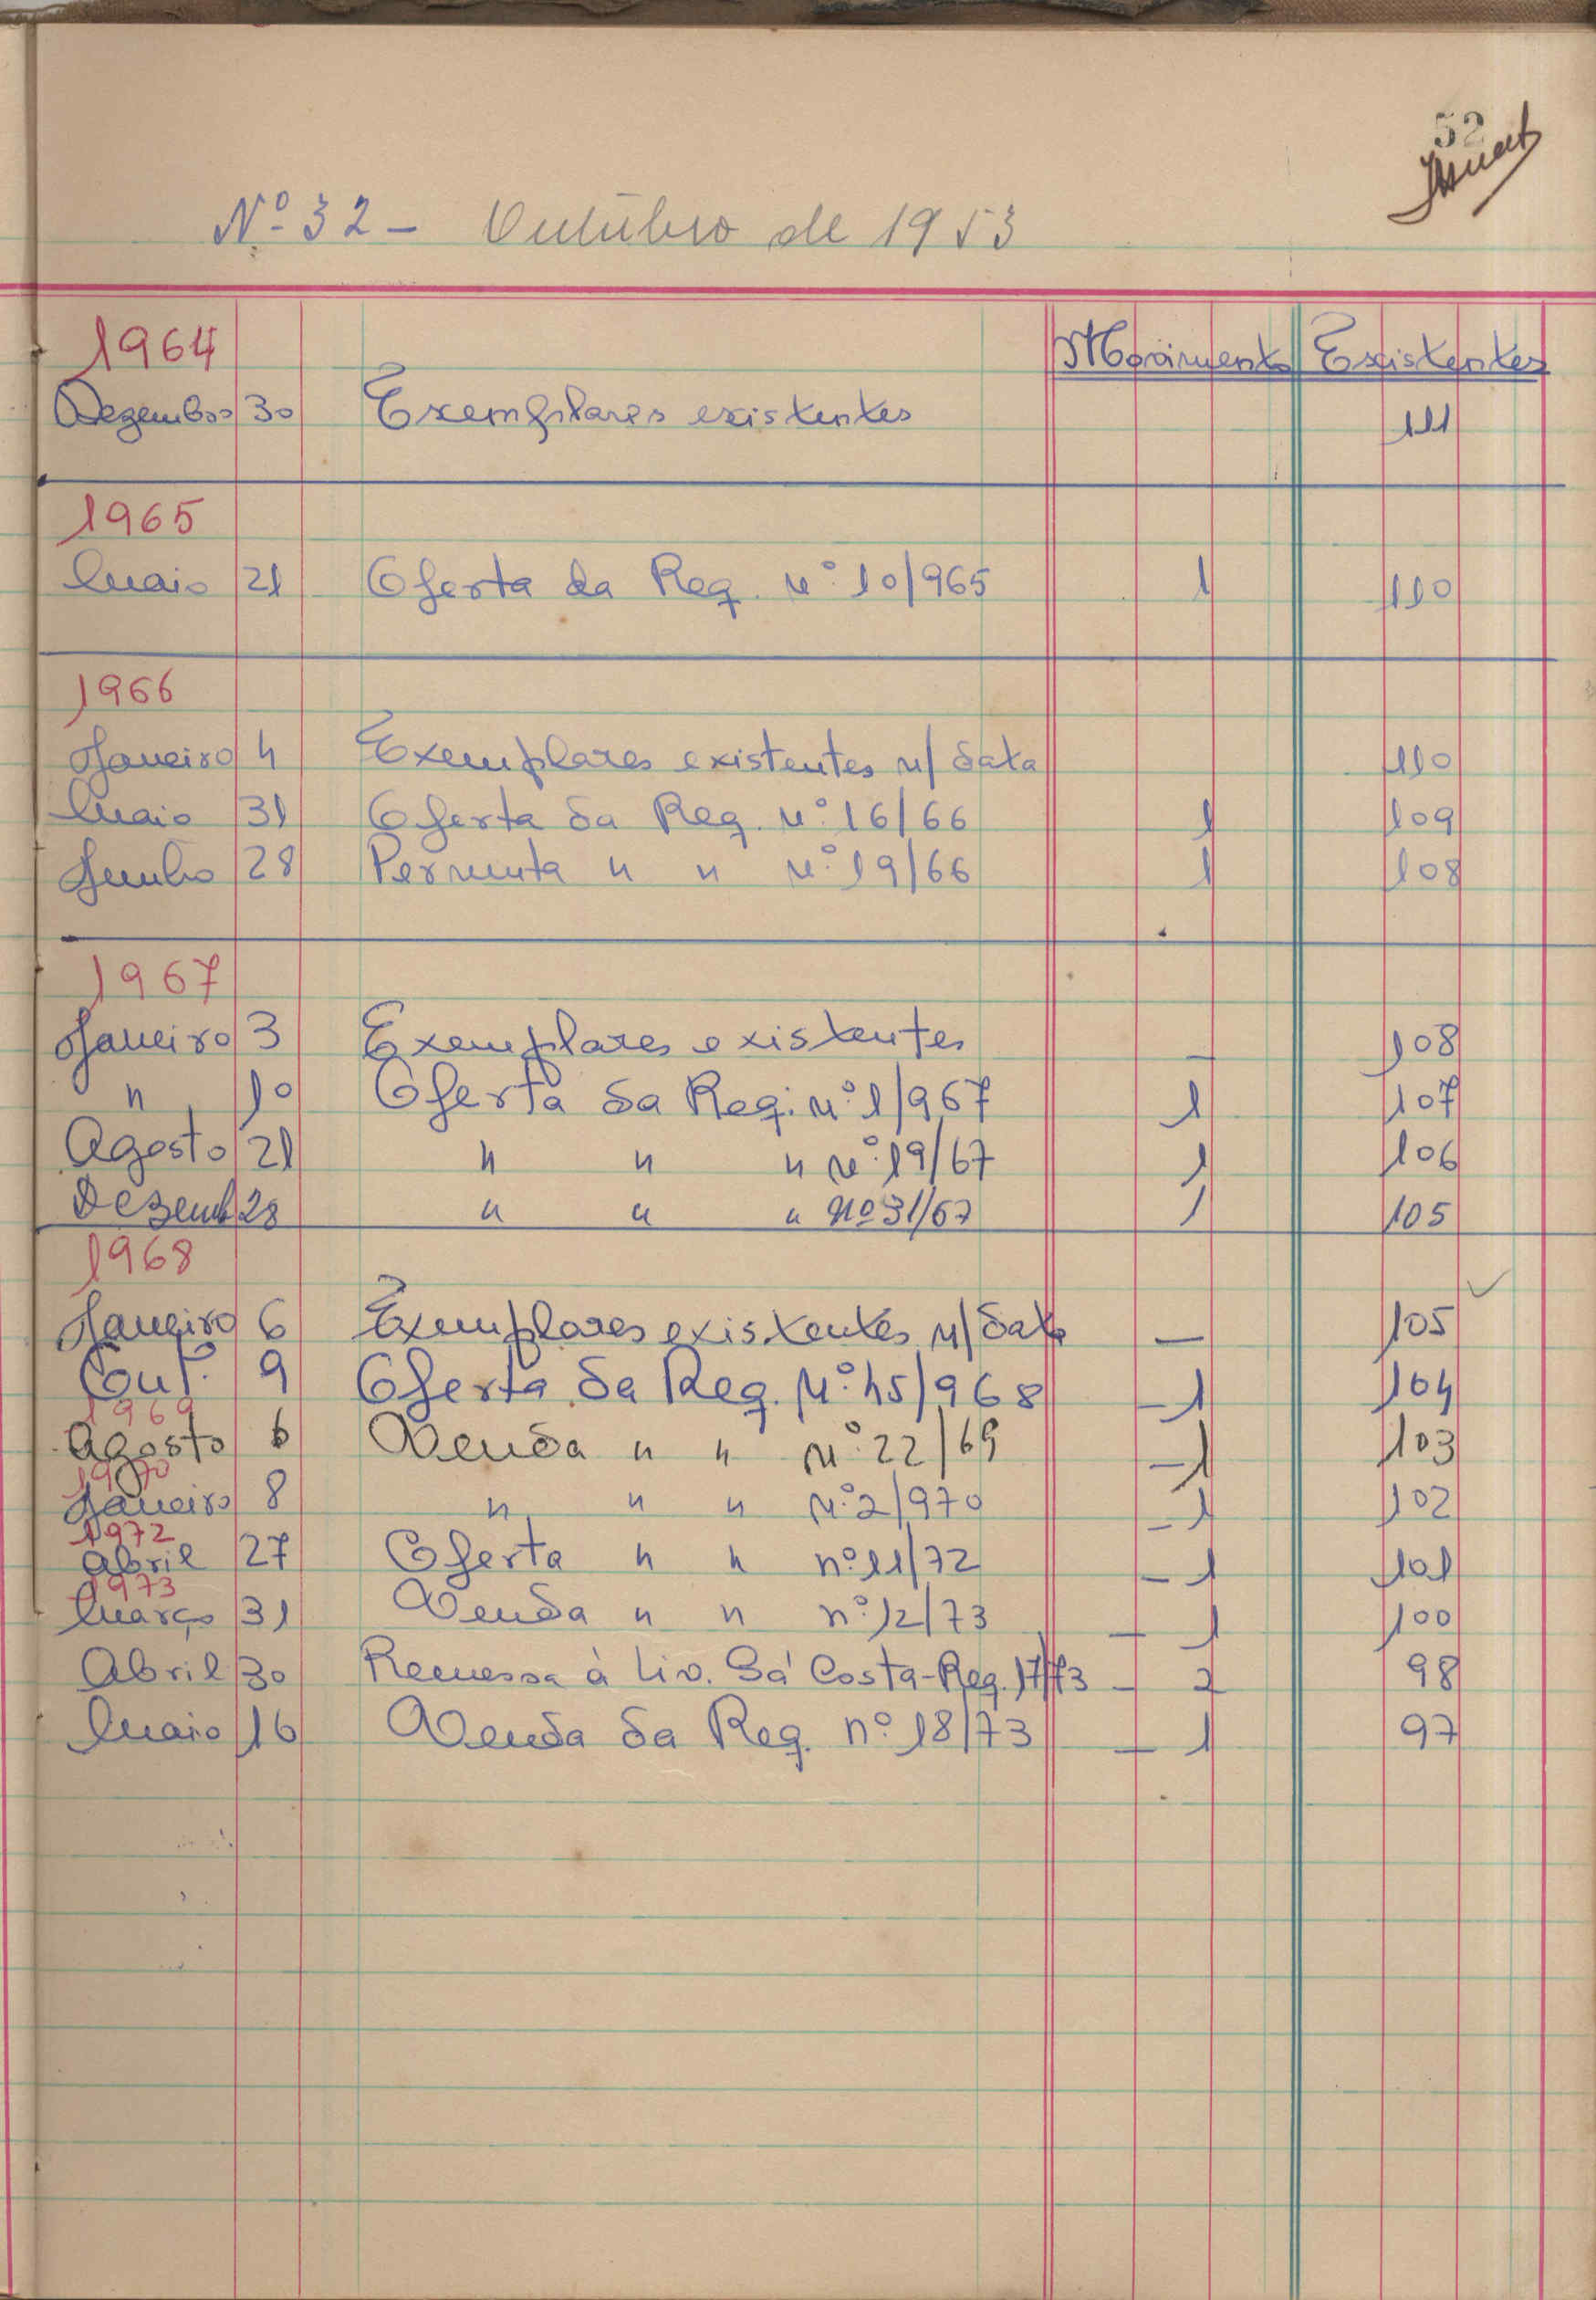 52
Nº 32 - Outubro de 1953
1964 Movimento Existentes
Dezembro 30 Exemplares existentes 111
1965
Maio 21 Oferta da Req. nº 10/965 1 110
1966
Janeiro 4 Exemplares existentes n/ data 110
Maio 31 Oferta da Req. nº 16/66 1 109
Junho 28 Permuta " " nº 19/66 1 108
1967
Janeiro 3 Exemplares existentes — 108
" 10 Oferta da Req. nº 1/967 1 107
Agosto 21 " " " nº 19/67 1 106
Dezemb 28 " " " nº 31/67 1 105
1968
Janeiro 6 Exemplares existentes n/ data — 105 ✓
Out. 9 Oferta da Req. Nº 45/968 - 1 104
1969
Agosto 6 Venda " " nº 22/69 - 1 103
1970
Janeiro 8 " " " nº 2/970 - 1 102
1972
Abril 27 Oferta " " nº 11/72 - 1 101
1973
Março 31 Venda " " nº 12/73 - 1 100
Abril 30 Remessa à Liv. Sá Costa - Req. 17/73 - 2 98
Maio 16 Venda da Req. nº 18/73 - 1 97